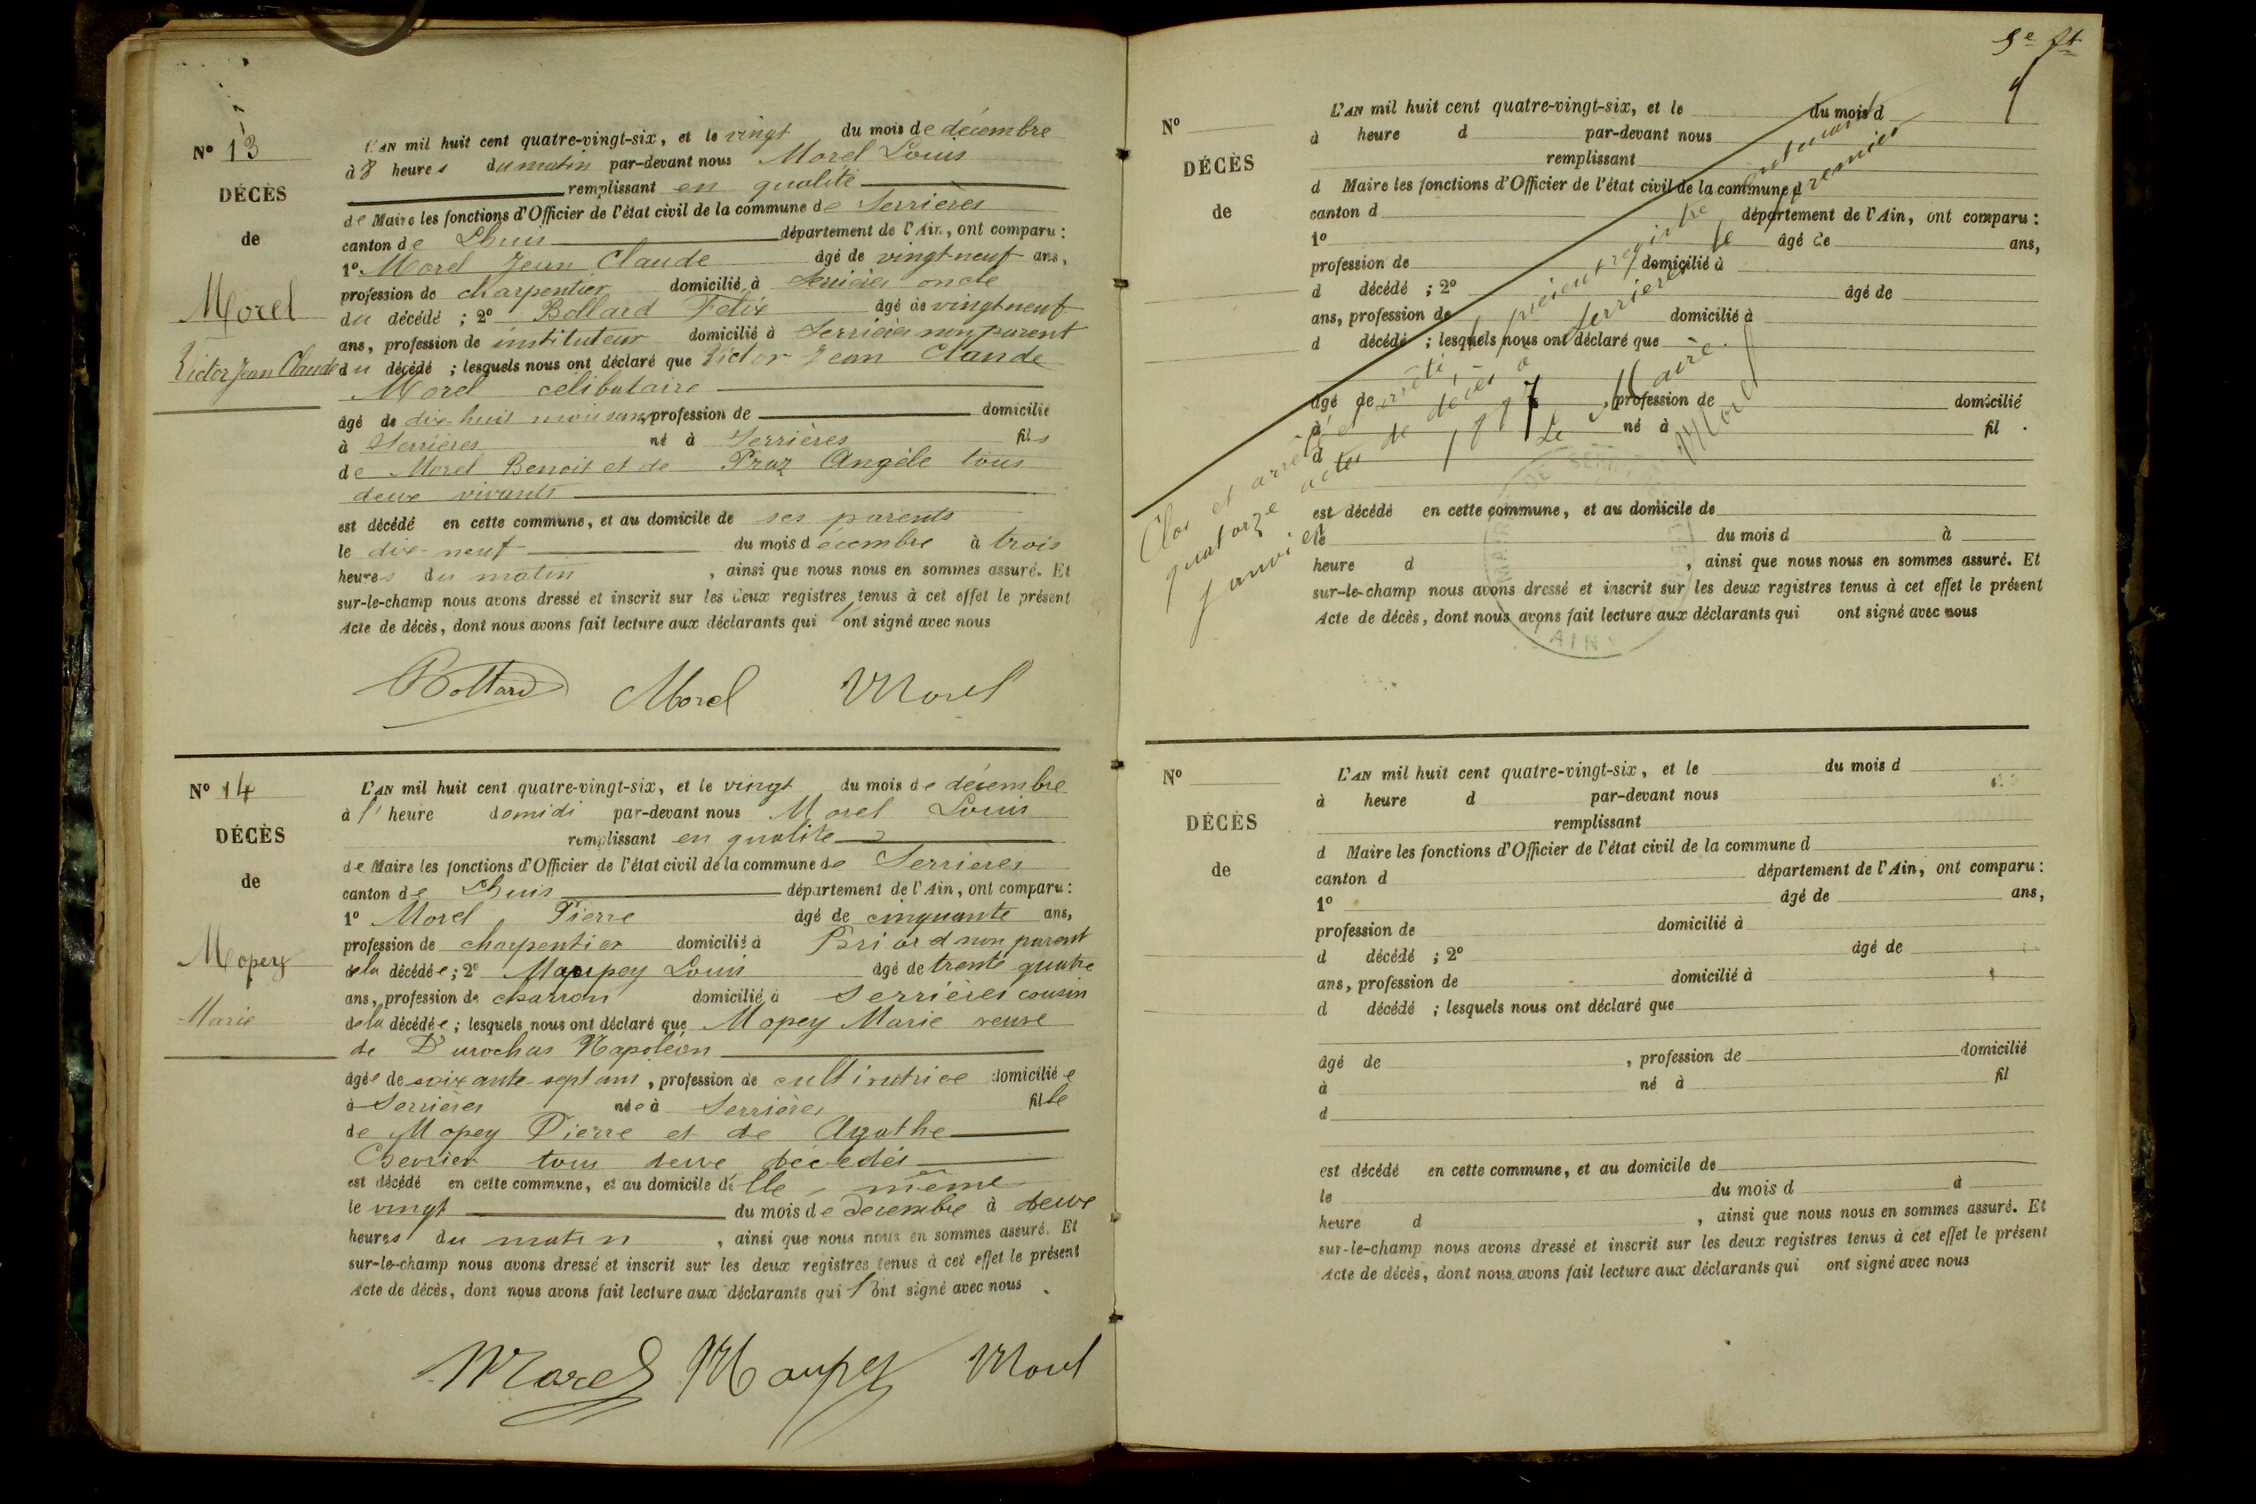 Nº 13
DÉCÈS
de
Morel
Victor Jean Claude
L'AN mil huit cent quatre-vingt-six, et le vingt du mois de décembre
à 8 heures du matin par-devant nous Morel Louis
remplissant en qualité
de Maire les fonctions d'Officier de l'état civil de la commune de Serrières
canton de Lhuis département de l'Ain, ont comparu :
1º Morel Jean Claude âgé de vingt neuf ans,
profession de charpentier domicilié à Serrières oncle
du décédé ; 2º Bollard Felix âgé de vingt neuf
ans, profession de instituteur domicilié à Serrières non parent
du décédé ; lesquels nous ont déclaré que Victor Jean Claude
Morel celibataire
âgé de dix huit mois ans, profession de domicilié
à Serrières né à Serrières fils
de Morel Benoit et de Praz Angèle tous
deux vivants
est décédé en cette commune, et au domicile de ses parents
le dix-neuf du mois décembre à trois
heures du matin , ainsi que nous nous en sommes assuré. Et
sur-le-champ nous avons dressé et inscrit sur les deux registres tenus à cet effet le présent
Acte de décès, dont nous avons fait lecture aux déclarants qui ont signé avec nous
Bollard Morel Morel
Nº 14
DÉCÈS
de
Mopey
Marie
L'AN mil huit cent quatre-vingt-six, et le vingt du mois de décembre
à 1 heure demidi par-devant nous Morel Louis
remplissant en qualité
de Maire les fonctions d'Officier de l'état civil de la commune de Serrières
canton de Lhuis département de l'Ain, ont comparu :
1º Morel Pierre âgé de cinquante ans,
profession de charpentier domicilié à Briord non parent
de la décédée ; 2º Maupey Louis âgé de trente quatre
ans, profession de charron domicilié à Serrières cousin
de la décédée ; lesquels nous ont déclaré que Mopey Marie veuve
de Durochas Napoléon
âgée de soixante-sept ans, profession de cultivatrice domiciliée
à Serrières née à Serrières fille
de Mopey Pierre et de Agathe
Chevrier tous deux décédés
est décédé en cette commune, et au domicile d'elle même
le vingt du mois de decembre à deux
heures du matin , ainsi que nous nous en sommes assuré. Et
sur-le-champ nous avons dressé et inscrit sur les deux registres tenus à cet effet le présent
Acte de décès, dont nous avons fait lecture aux déclarants qui ont signé avec nous
Morel Maupey Morel
9
Nº
DÉCÈS
de
L'AN mil huit cent quatre-vingt-six, et le du mois d
à heure d par-devant nous
remplissant
d Maire les fonctions d'Officier de l'état civil de la commune d
canton d département de l'Ain, ont comparu :
1º âgé de ans,
profession de domicilié à
d décédé ; 2º âgé de
ans, profession de domicilié à
d décédé ; lesquels nous ont déclaré que
âgé de , profession de domicilié
à né à fil
d
est décédé en cette commune, et au domicile de
le du mois d à
heure d , ainsi que nous nous en sommes assuré. Et
sur-le-champ nous avons dressé et inscrit sur les deux registres tenus à cet effet le présent
Acte de décès, dont nous avons fait lecture aux déclarants qui ont signé avec nous
Clos et arrêté le présent registre contenant
quatorze actes de décès à Serrières le premier
janvier 1887
Le Maire.
Morel
AIN
Nº
DÉCÈS
de
L'AN mil huit cent quatre-vingt-six, et le du mois d
à heure d par-devant nous
remplissant
d Maire les fonctions d'Officier de l'état civil de la commune d
canton d département de l'Ain, ont comparu :
1º âgé de ans,
profession de domicilié à
d décédé ; 2º âgé de
ans, profession de domicilié à
d décédé ; lesquels nous ont déclaré que
âgé de , profession de domicilié
à né à fil
d
est décédé en cette commune, et au domicile de
le du mois d à
heure d , ainsi que nous nous en sommes assuré. Et
sur-le-champ nous avons dressé et inscrit sur les deux registres tenus à cet effet le présent
Acte de décès, dont nous avons fait lecture aux déclarants qui ont signé avec nous